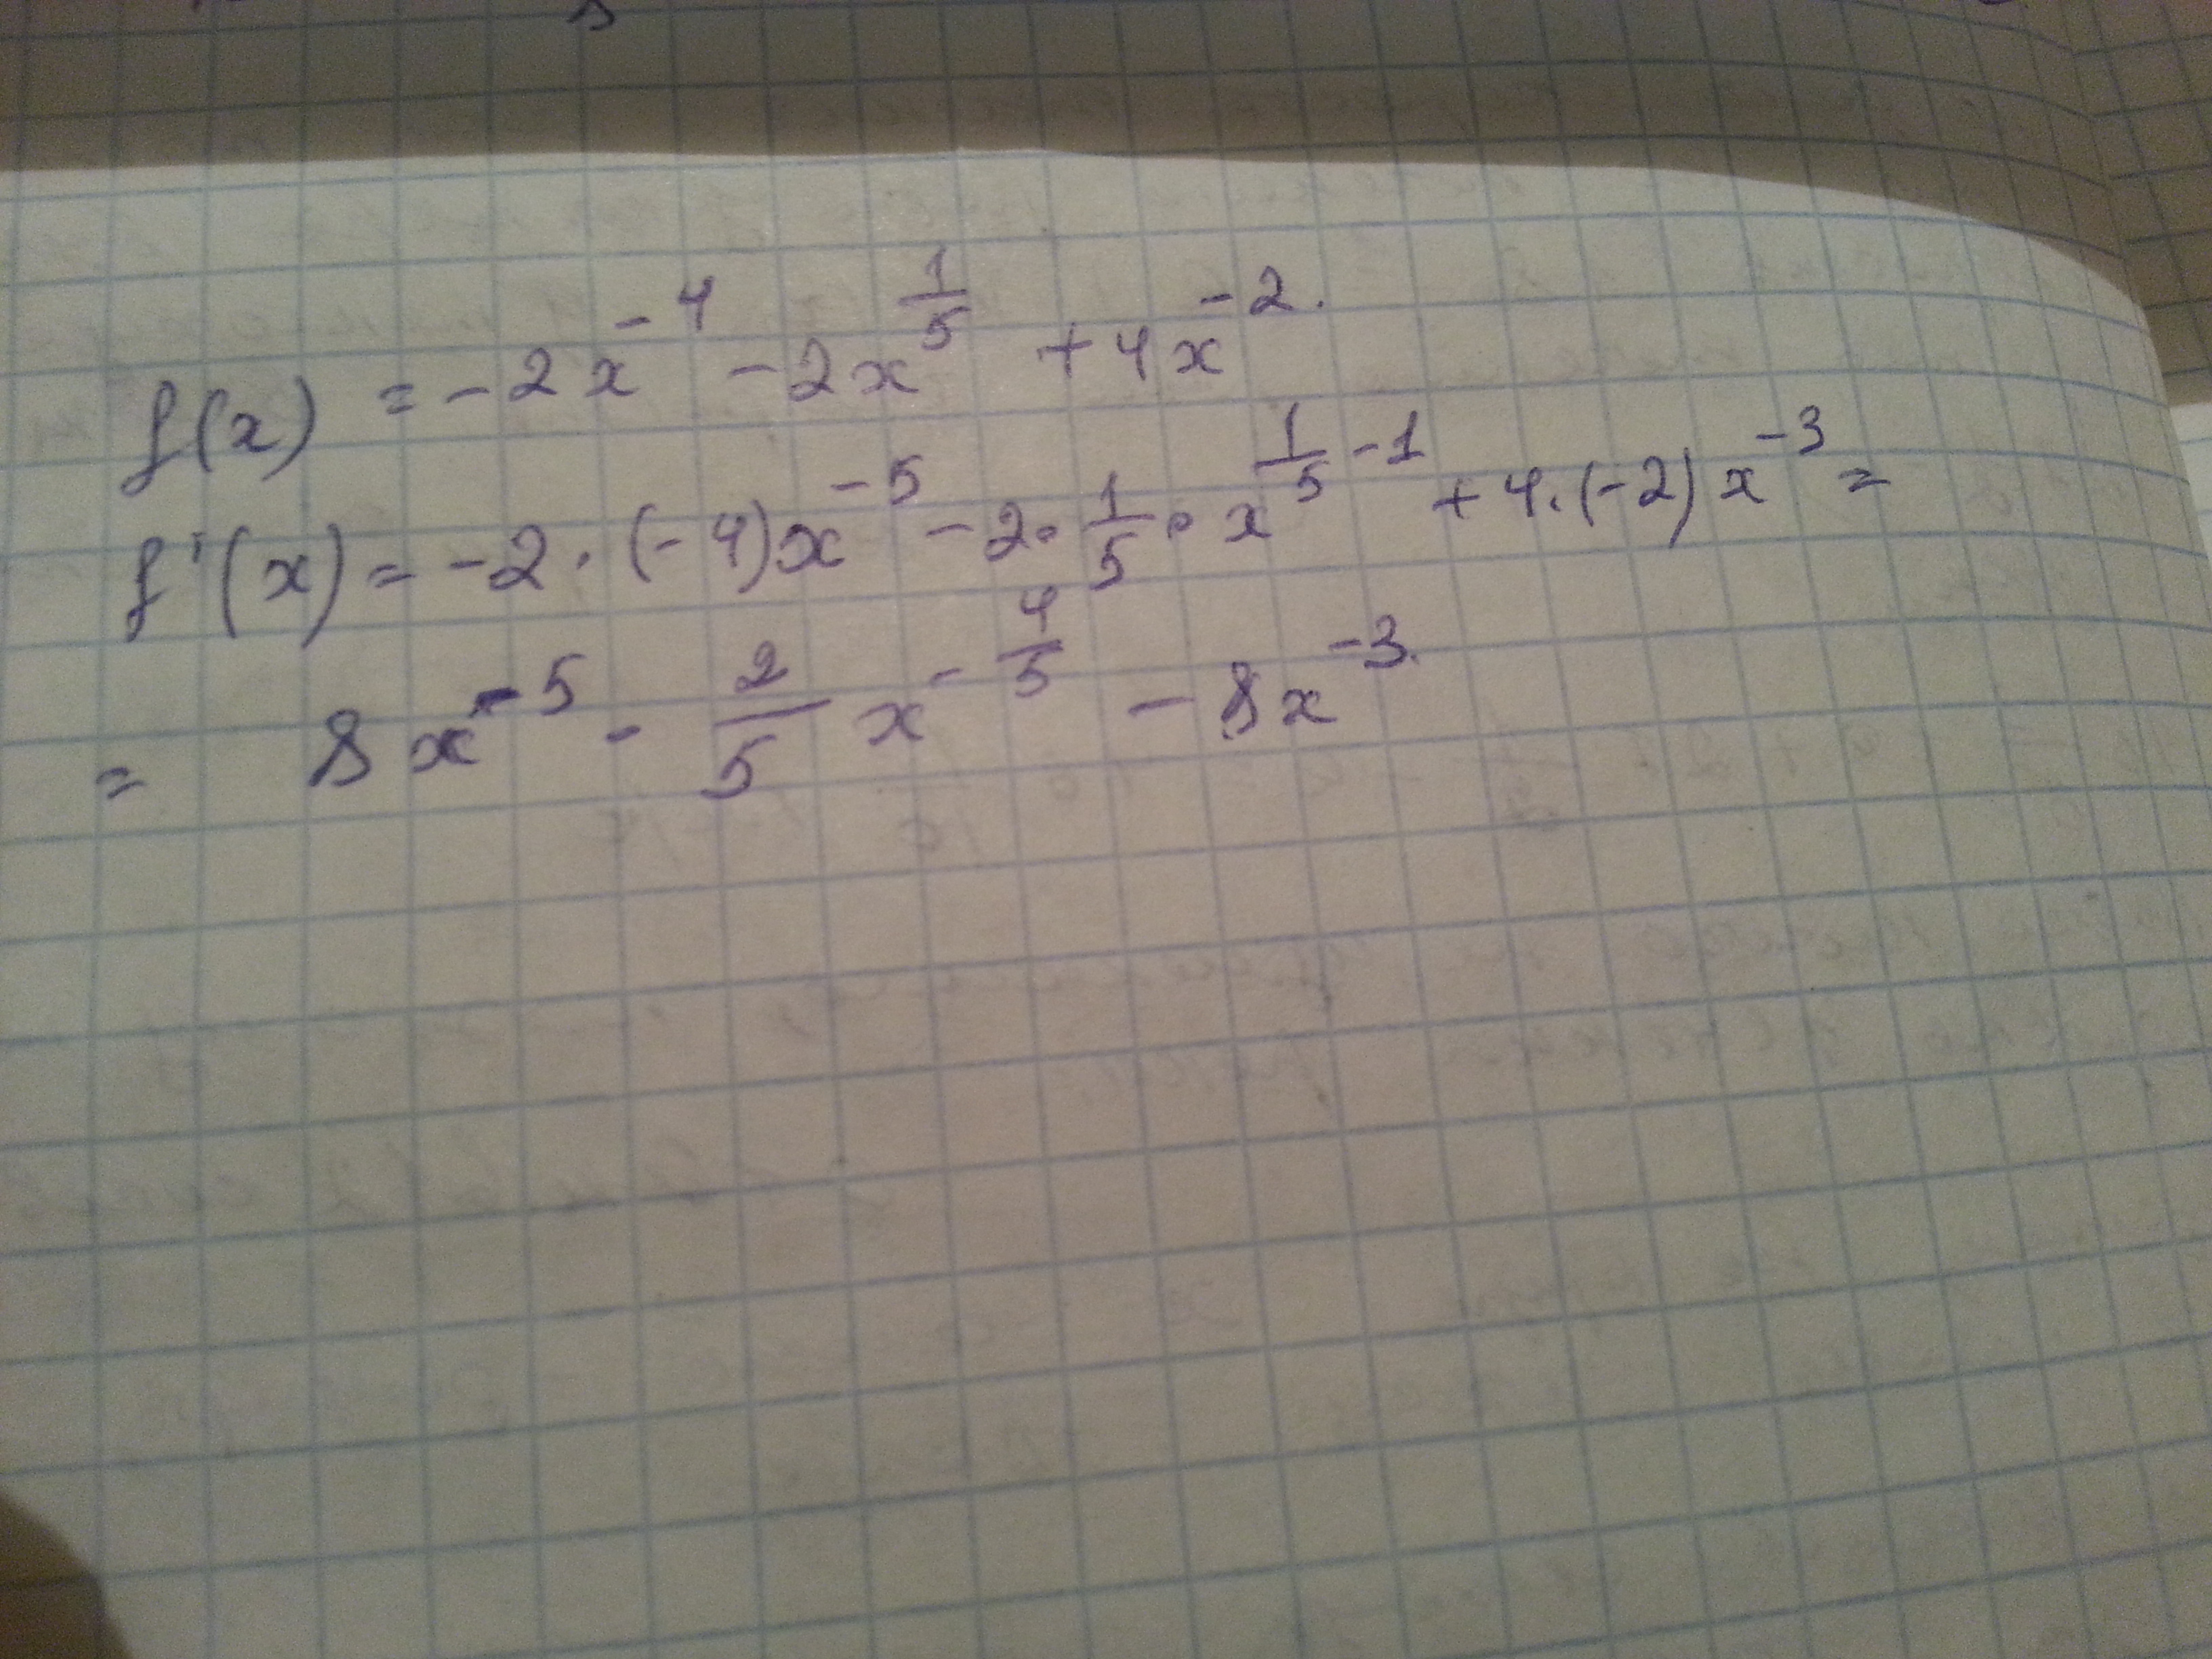 f(x) = -2x^{-4} - 2x^{\frac{1}{5}} + 4x^{-2}.
f'(x) = -2 · (-4)x^{-5} - 2 · \frac{1}{5} · x^{\frac{1}{5} - 1} + 4 · (-2)x^{-3} =
= 8x^{-5} - \frac{2}{5} x^{-\frac{4}{5}} - 8x^{-3}.